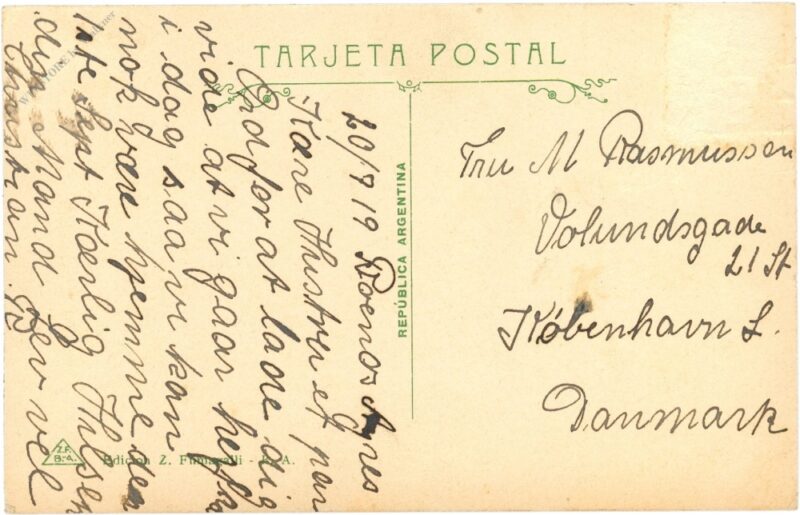 TARJETA POSTAL
REPÚBLICA ARGENTINA
20/8 19 Boenos Ayres
Kære Hustru et par
Ord for at lade dig
vide at vi gaar her fra
i dag saa vi kan
nok være hjemme den
Sept Kærlig Hilsen
din Mand Lev vel
Fru M Rasmussen
Volundsgade
21 St
København L.
Danmark
Z.F.
B.A.
Edición Z. Fumagalli - B. A.